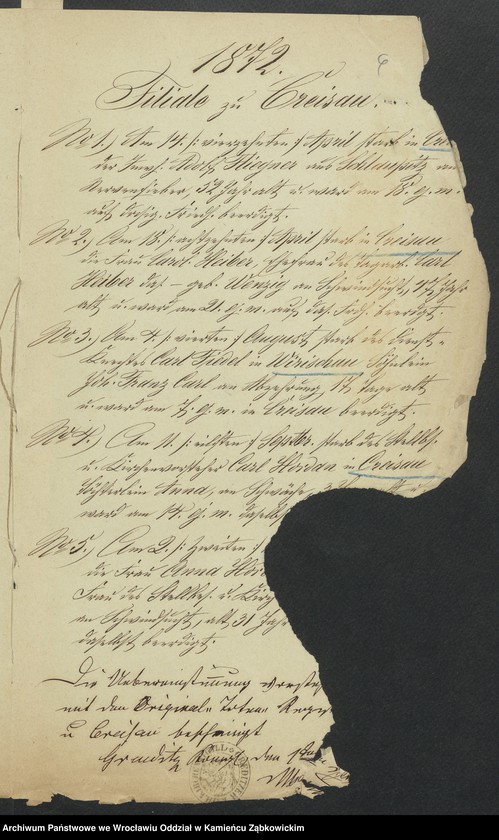 6
1872.
Filiale zu Creisau.
No 1.) Am 14. /: vierzehnten :/ April starb in Crei
der Inws. Adolf aus Schlaupitz am
Nervenfieber, 32 Jahr alt u. ward am 18. ej. m.
auf hiesig. Kirchh. beerdigt.
No 2.) Am 18. /: achtzehnten :/ April starb in Creisau
die Frau Carol. Heiber, Ehefrau des Tagarb. Carl
Heiber das. – geb. Wenzig an Schwindsucht, Jahr
alt u. ward am 21. ej. m. auf das. Kirchh. beerdigt.
No 3.) Am 4. /: vierten :/ August starb des Dienst-
knechtes Carl Fiedel in Wierischau Söhnlein
Joh. Franz Carl an Abzehrung, Tage alt
u. ward am 7. ej. m. in Creisau beerdigt.
No 4.) Am 11. /: eilften :/ Septbr. starb des Stellbes.
u. Kirchenvorsteher Carl in Creisau
Töchterlein Anna, an Schwäche,
ward am 14. ej. m. daselbst
No 5.) Am 2. /: zweiten :/
die Frau Anna
Frau des Stellbes. u. Kirch
an Schwindsucht, alt 31 Jahr
daselbst beerdigt.
Die Uebereinstimmung vorsteh
mit den Original-Toten-Regis
u Creisau bescheinigt
Graeditz den
Archiwum Państwowe we Wrocławiu Oddział w Kamieńcu Ząbkowickim